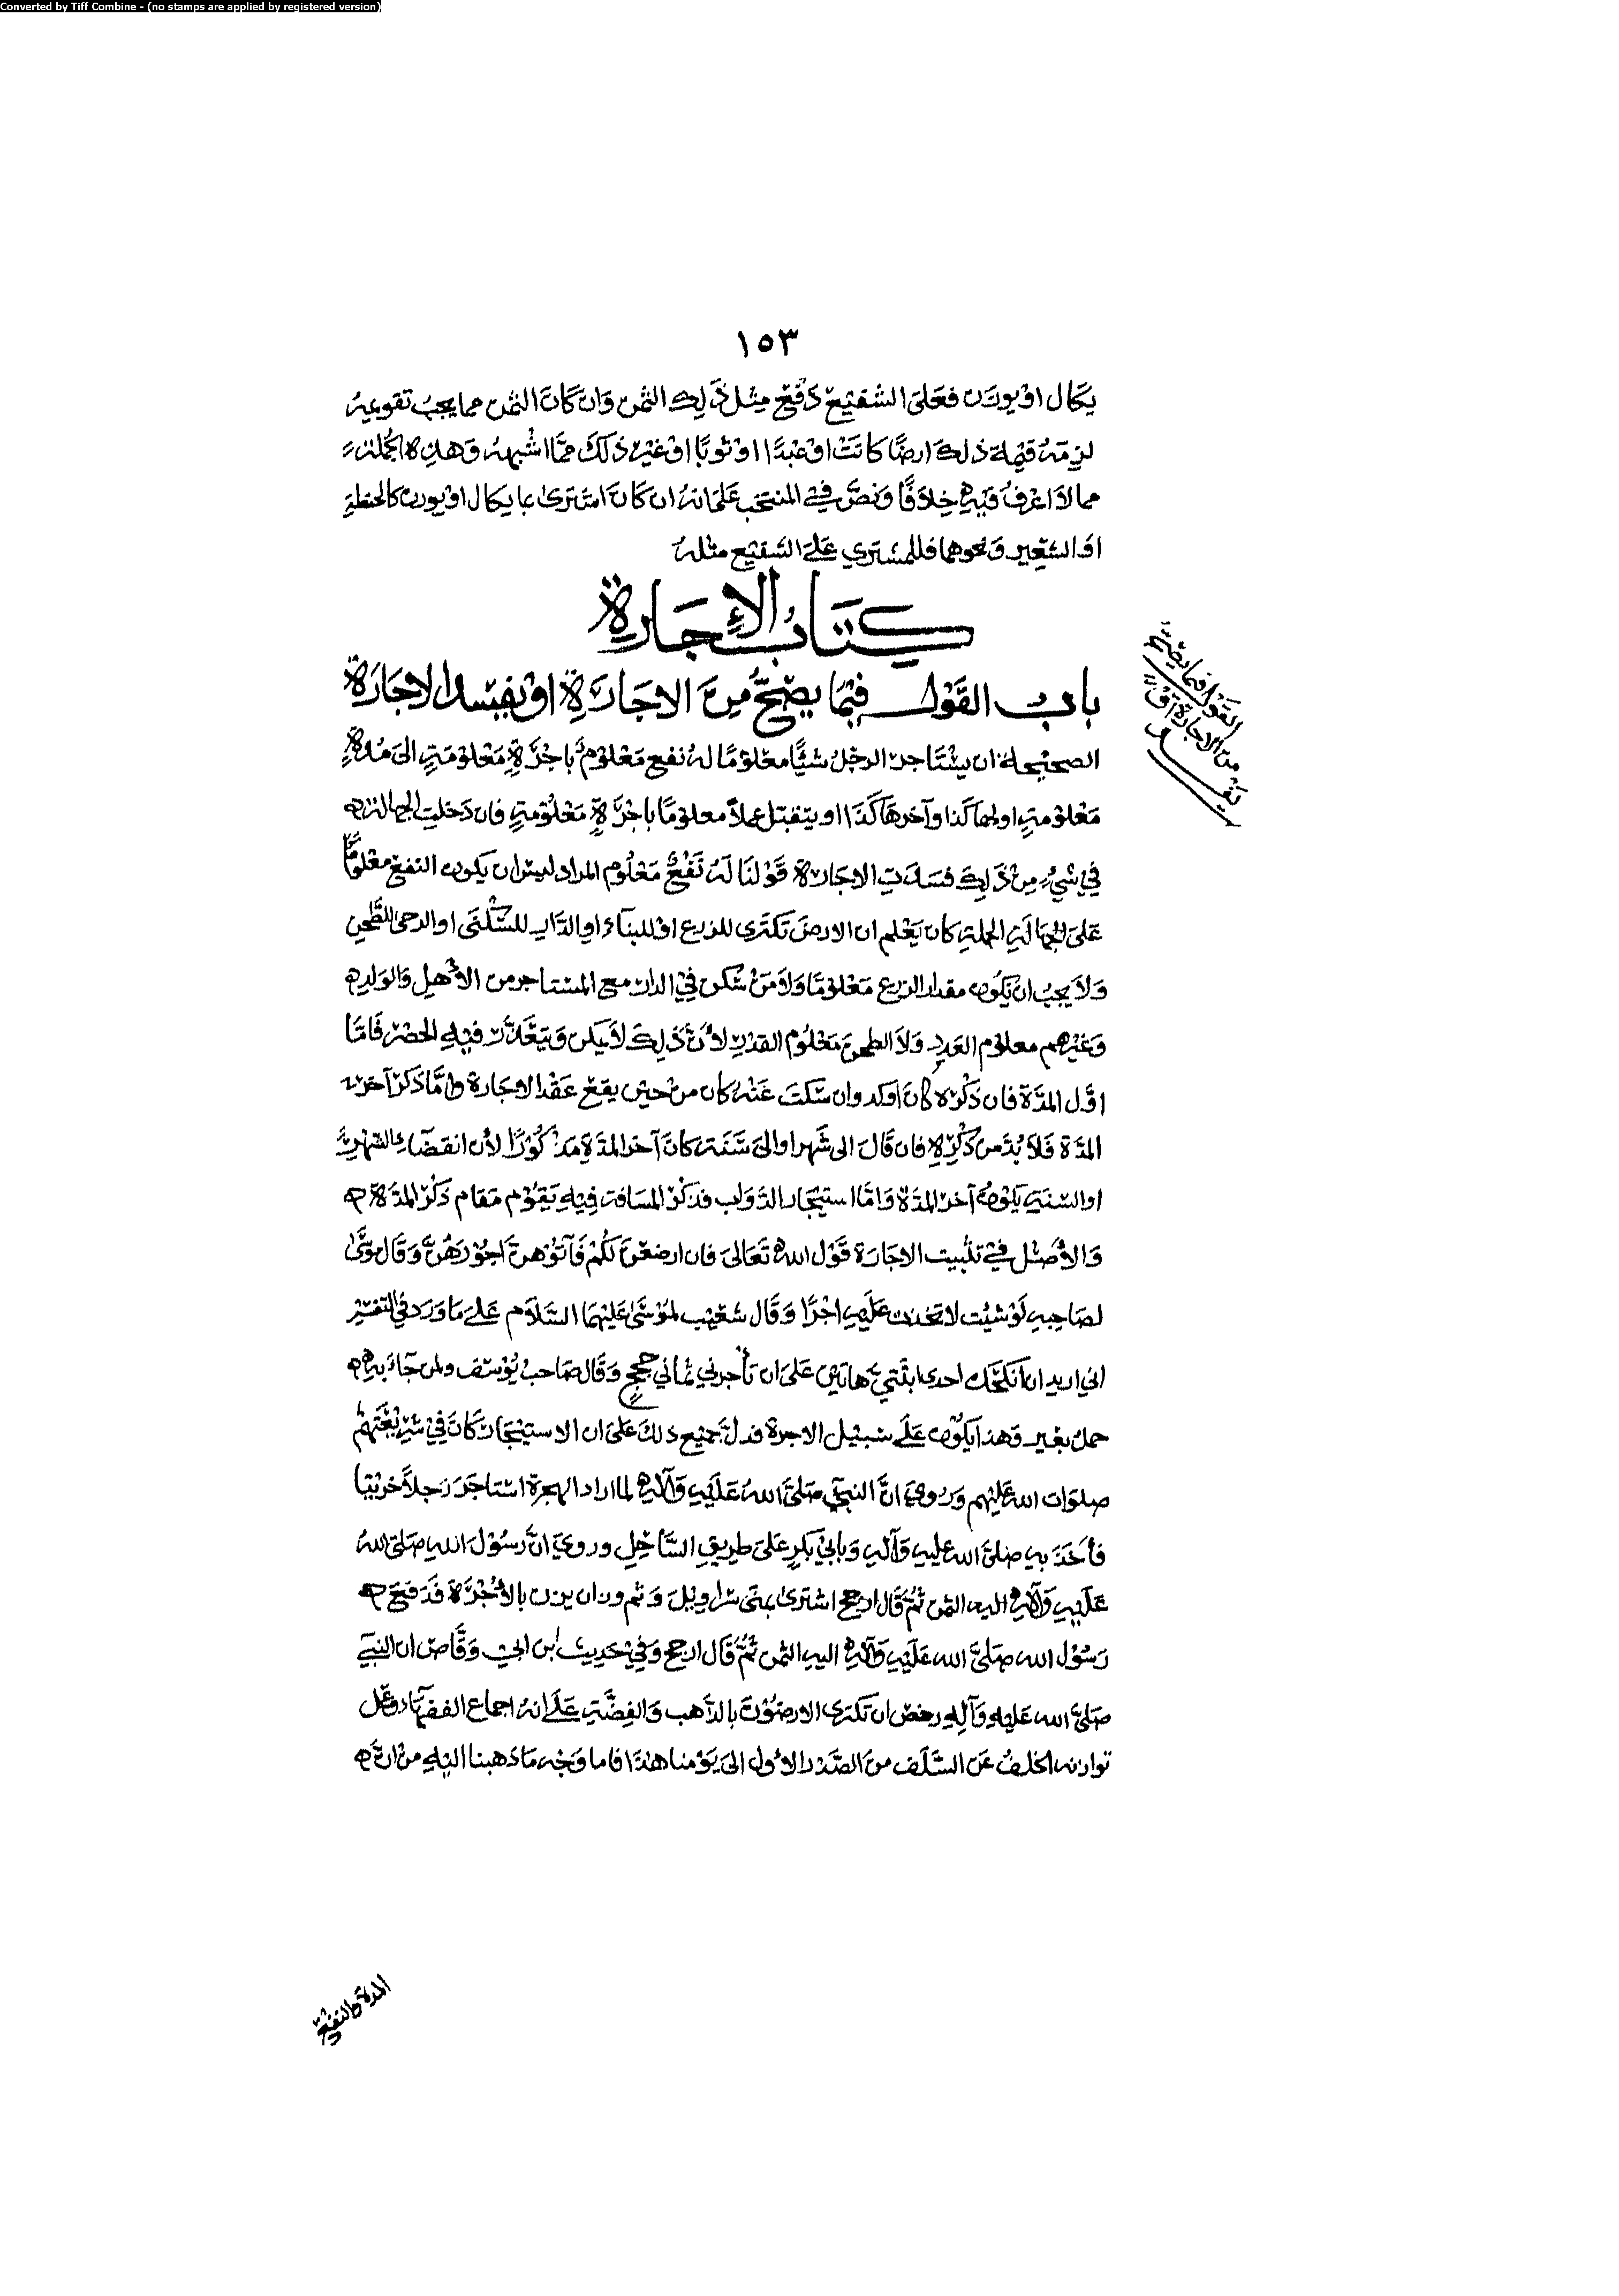 Converted by Tiff Combine - (no stamps are applied by registered version)
١٥٣
يكال او يوزن فعلى الشفيع دفع مثل ذلك الثمن وان كان الثمن مما يجب تقويمه
لزمته قيمة ذلك ارضًا كانت او عبدًا او ثوبًا او غير ذلك مما اشبهه وهذه الجملة
مما لا اعرف فيه خلافًا ونص في المنتخب على انه ان كان اشترى بما يكال او يوزن كالحنطة
او الشعير ونحوهما فللمشتري على الشفيع مثله
كتاب الإجارة
باب القول فيما يصح من الاجارة او يفسد الاجارة
القول فيما يصح
من الاجارة او
يفسد
الصحيحة ان يستاجر الرجل شيئًا معلومًا له نفع معلوم باجرة معلومة الى مدة
معلومة اولها كذا وآخرها كذا او يتقبل عملاً معلومًا باجرة معلومة فان دخلت الجهالة
في شيء من ذلك فسدت الاجارة قولنا له نفع معلوم المراد ليس ان يكون النفع معلومًا
على الجملة كان يعلم ان الارض تكترى للزرع او للبناء او الدار للسكنى او الرحى للطحن
ولا يجب ان يكون مقدار الزرع معلومًا ولا من سكن في الدار مع المستاجر من الأهل والولد
وغيرهم معلوم العدد ولا الطحن معلوم القدر لأن ذلك لا يمكن ويتعذر فيه الحصر فاما
اول المدة فان ذكره كان اوكد وان سكت عنه كان من حين يقع عقد الاجارة واما ذكر آخر
المدة فلا بد من ذكره فان قال الى شهر او الى سنة كان آخر المدة مذكورًا لأن انقضاء الشهر
او السنة يكون آخر المدة واما استيجار الدواب فذكر المسافة فيه يقوم مقام ذكر المدة
والأصل في تثبيت الاجارة قول الله تعالى فان ارضعن لكم فآتوهن اجورهن وقال موسى
لصاحبه لو شئت لاتخذت عليه اجرًا وقال شعيب لموسى عليهما السلام على ما ورد في التفسير
اني اريد ان انكحك احدى ابنتي هاتين على ان تأجرني ثماني حجج وقال صاحب يوسف ولمن جاء به
حمل بعير وهذا يكون على سبيل الاجرة فدل جميع ذلك على ان الاستيجار كان في شريعتهم
صلوات الله عليهم وروي ان النبي صلى الله عليه وآله لما اراد الهجرة استاجر رجلاً خريتًا
فأخذ به صلى الله عليه وآله وبابي بكر على طريق الساحل وروي ان رسول الله صلى الله
عليه وآله اليه الثمن ثم قال ارجح اشترى بمنى سراويل وثم وزان يزن بالأجرة فدفع
رسول الله صلى الله عليه وآله اليه الثمن ثم قال ارجح وفي حديث ابن ابي وقاص ان النبي
صلى الله عليه وآله رخص ان تكترى الارضون بالذهب والفضة على انه اجماع الفقهاء وعمل
توارثه الخلف عن السلف من الصدر الأول الى يومنا هذا فاما وجه ما ذهبنا اليه من ان
المدة والنفع